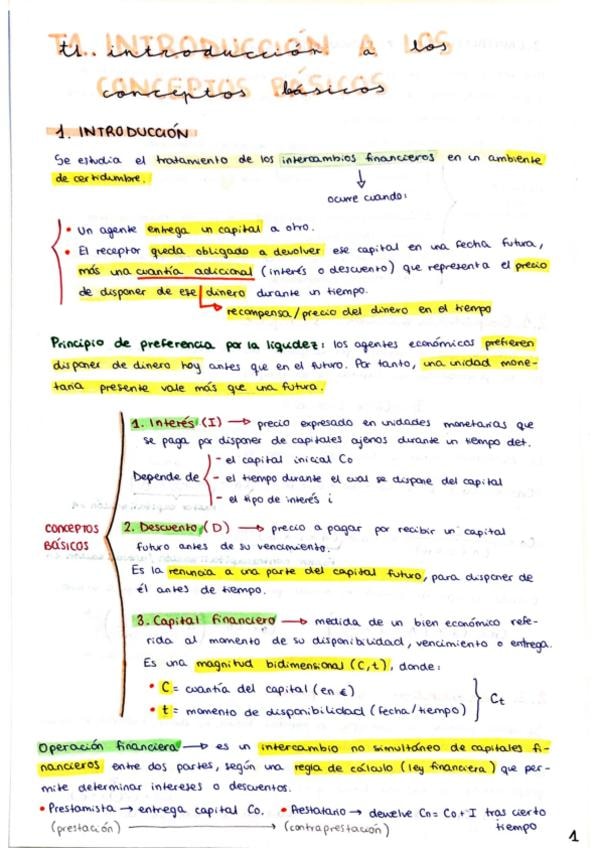 T1. introducción a los
conceptos básicos
1. INTRODUCCIÓN
Se estudia el tratamiento de los intercambios financieros en un ambiente
de certidumbre.
ocurre cuando:
• Un agente entrega un capital a otro.
• El receptor queda obligado a devolver ese capital en una fecha futura,
más una cuantía adicional (interés o descuento) que representa el precio
de disponer de ese dinero durante un tiempo.
recompensa/precio del dinero en el tiempo
Principio de preferencia por la liquidez: los agentes económicos prefieren
disponer de dinero hoy antes que en el futuro. Por tanto, una unidad mone-
taria presente vale más que una futura.
1. Interés (I) → precio expresado en unidades monetarias que
se paga por disponer de capitales ajenos durante un tiempo det.
Depende de
- el capital inicial Co
- el tiempo durante el cual se dispone del capital
- el tipo de interés i
CONCEPTOS
BÁSICOS
2. Descuento (D) → precio a pagar por recibir un capital
futuro antes de su vencimiento.
Es la renuncia a una parte del capital futuro, para disponer de
él antes de tiempo.
3. Capital financiero → medida de un bien económico refe-
rida al momento de su disponibilidad, vencimiento o entrega.
Es una magnitud bidimensional (C,t), donde:
• C = cuantía del capital (en €)
• t = momento de disponibilidad (fecha/tiempo)
Ct
Operación financiera → es un intercambio no simultáneo de capitales fi-
nancieros entre dos partes, según una regla de cálculo (ley financiera) que per-
mite determinar intereses o descuentos.
• Prestamista → entrega capital Co. • Prestatario → devuelve Cn = Co + I tras cierto
(prestación) → (contraprestación) tiempo
1